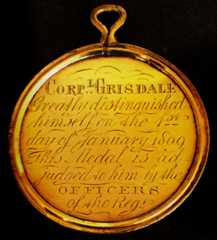 CORPˡ GRISDALE
Greatly distinguished
himself on the 1st
day of January 1809
This Medal is ad
judged to him by the
OFFICERS
of the Regᵗ